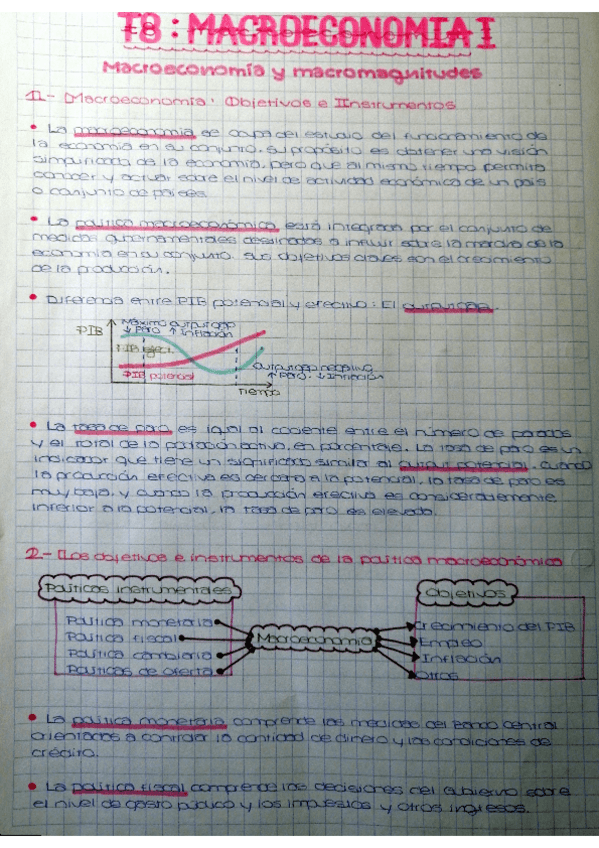 T8: MACROECONOMIA I
Macroeconomía y macromagnitudes
1.- Macroeconomía: Objetivos e Instrumentos
• La macroeconomía se ocupa del estudio del funcionamiento de
la economía en su conjunto. Su propósito es obtener una visión
simplificada de la economía, pero que al mismo tiempo permita
conocer y actuar sobre el nivel de actividad económica de un país
o conjunto de países.
• La política macroeconómica está integrada por el conjunto de
medidas gubernamentales destinadas a influir sobre la marcha de la
economía en su conjunto. Sus objetivos claves son el crecimiento
de la producción.
• Diferencia entre PIB potencial y efectivo: El output gap.
Máximo output gap
PIB ↓ Paro ↑ Inflación
PIB efect.
Output gap negativo
PIB potencial ↑ Paro ↓ Inflación
Tiempo
• La tasa de paro es igual al cociente entre el número de parados
y el total de la población activa, en porcentaje. La tasa de paro es un
indicador que tiene un significado similar al output potencial. Cuando
la producción efectiva es cercana a la potencial, la tasa de paro es
muy baja, y cuando la producción efectiva es considerablemente
inferior a la potencial, la tasa de paro es elevada.
2.- Los objetivos e instrumentos de la política macroeconómica
Políticas instrumentales Objetivos
Política monetaria Crecimiento del PIB
Política fiscal Macroeconomía Empleo
Política cambiaria Inflación
Políticas de oferta Otros
• La política monetaria comprende las medidas del banco central
orientadas a controlar la cantidad de dinero y las condiciones de
crédito.
• La política fiscal comprende las decisiones del gobierno sobre
el nivel de gasto público y los impuestos y otros ingresos.